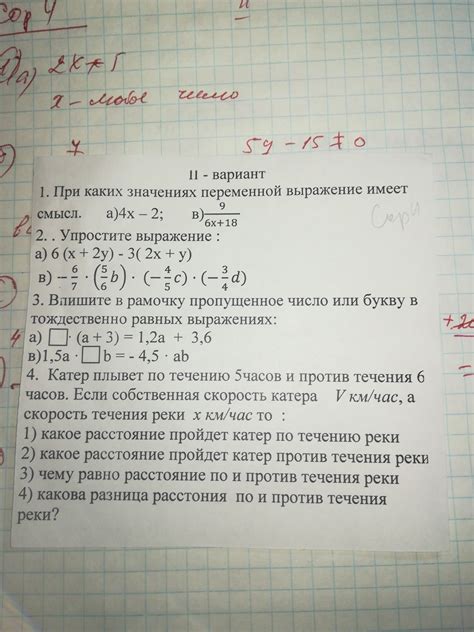 Сор 4
а) 2x + 5
x – любое число
7
5y – 15 ≠ 0
II - вариант
1. При каких значениях переменной выражение имеет
смысл. а)4x – 2; в) 9/(6x+18)
Сор 4
2. . Упростите выражение :
а) 6 (x + 2y) - 3( 2x + y)
в) – 6/7 · (5/6 b) · (– 4/5 c) · (– 3/4 d)
3. Впишите в рамочку пропущенное число или букву в
тождественно равных выражениях:
а) □· (a + 3) = 1,2a + 3,6
в)1,5a · □ b = - 4,5 · ab
4. Катер плывет по течению 5часов и против течения 6
часов. Если собственная скорость катера V км/час, а
скорость течения реки x км/час то :
1) какое расстояние пройдет катер по течению реки
2) какое расстояние пройдет катер против течения реки
3) чему равно расстояние по и против течения реки
4) какова разница расстония по и против течения
реки?